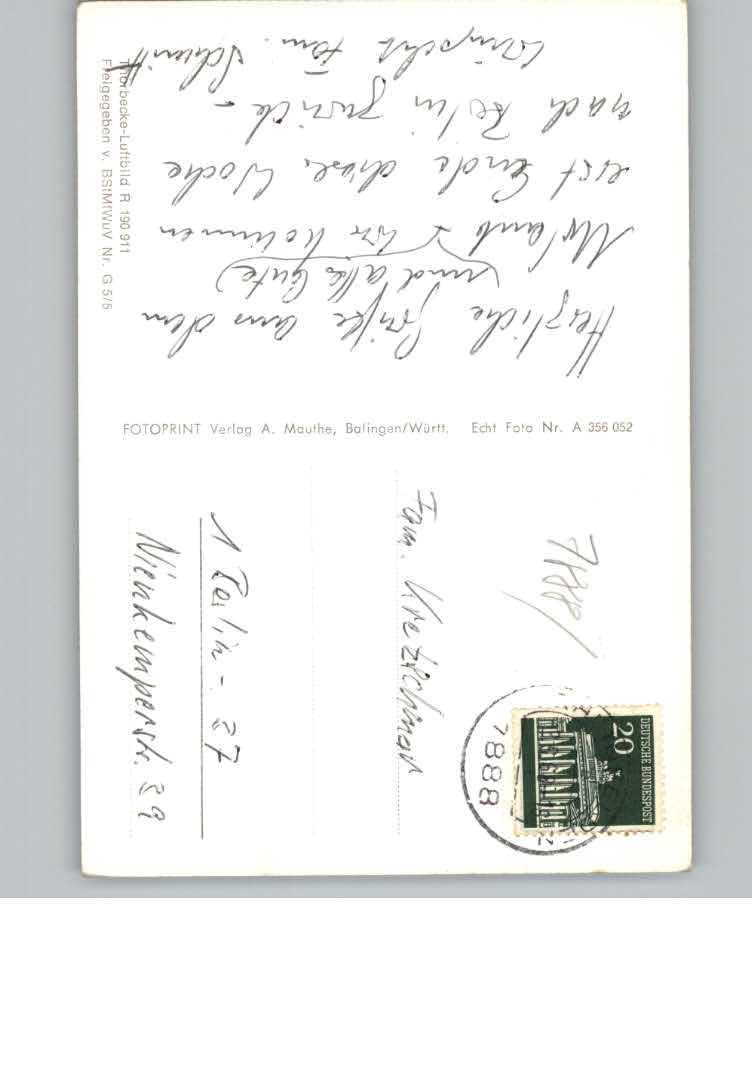 Herzliche Grüße aus dem
(und alles Gute)
Urlaub. Wir kommen
erst Ende diese Woche
nach Berlin zurück -
wünscht Fam. Schmitt
Thorbecke-Luftbild R 190 911
Freigegeben v. BStMfWuV Nr. G 5/5
FOTOPRINT Verlag A. Mauthe, Balingen/Württ. Echt Foto Nr. A 356 052
7888
DEUTSCHE BUNDESPOST
20
7888
Fam. Kretzschmar
1 Berlin - 37
Nienkemperstr. 39